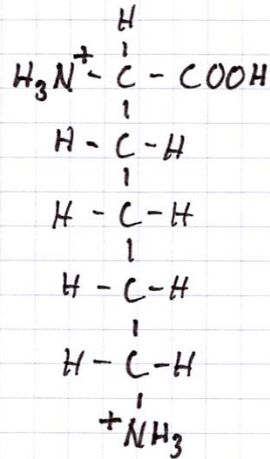 H
H₃N⁺ - C - COOH
H - C - H
H - C - H
H - C - H
H - C - H
⁺NH₃